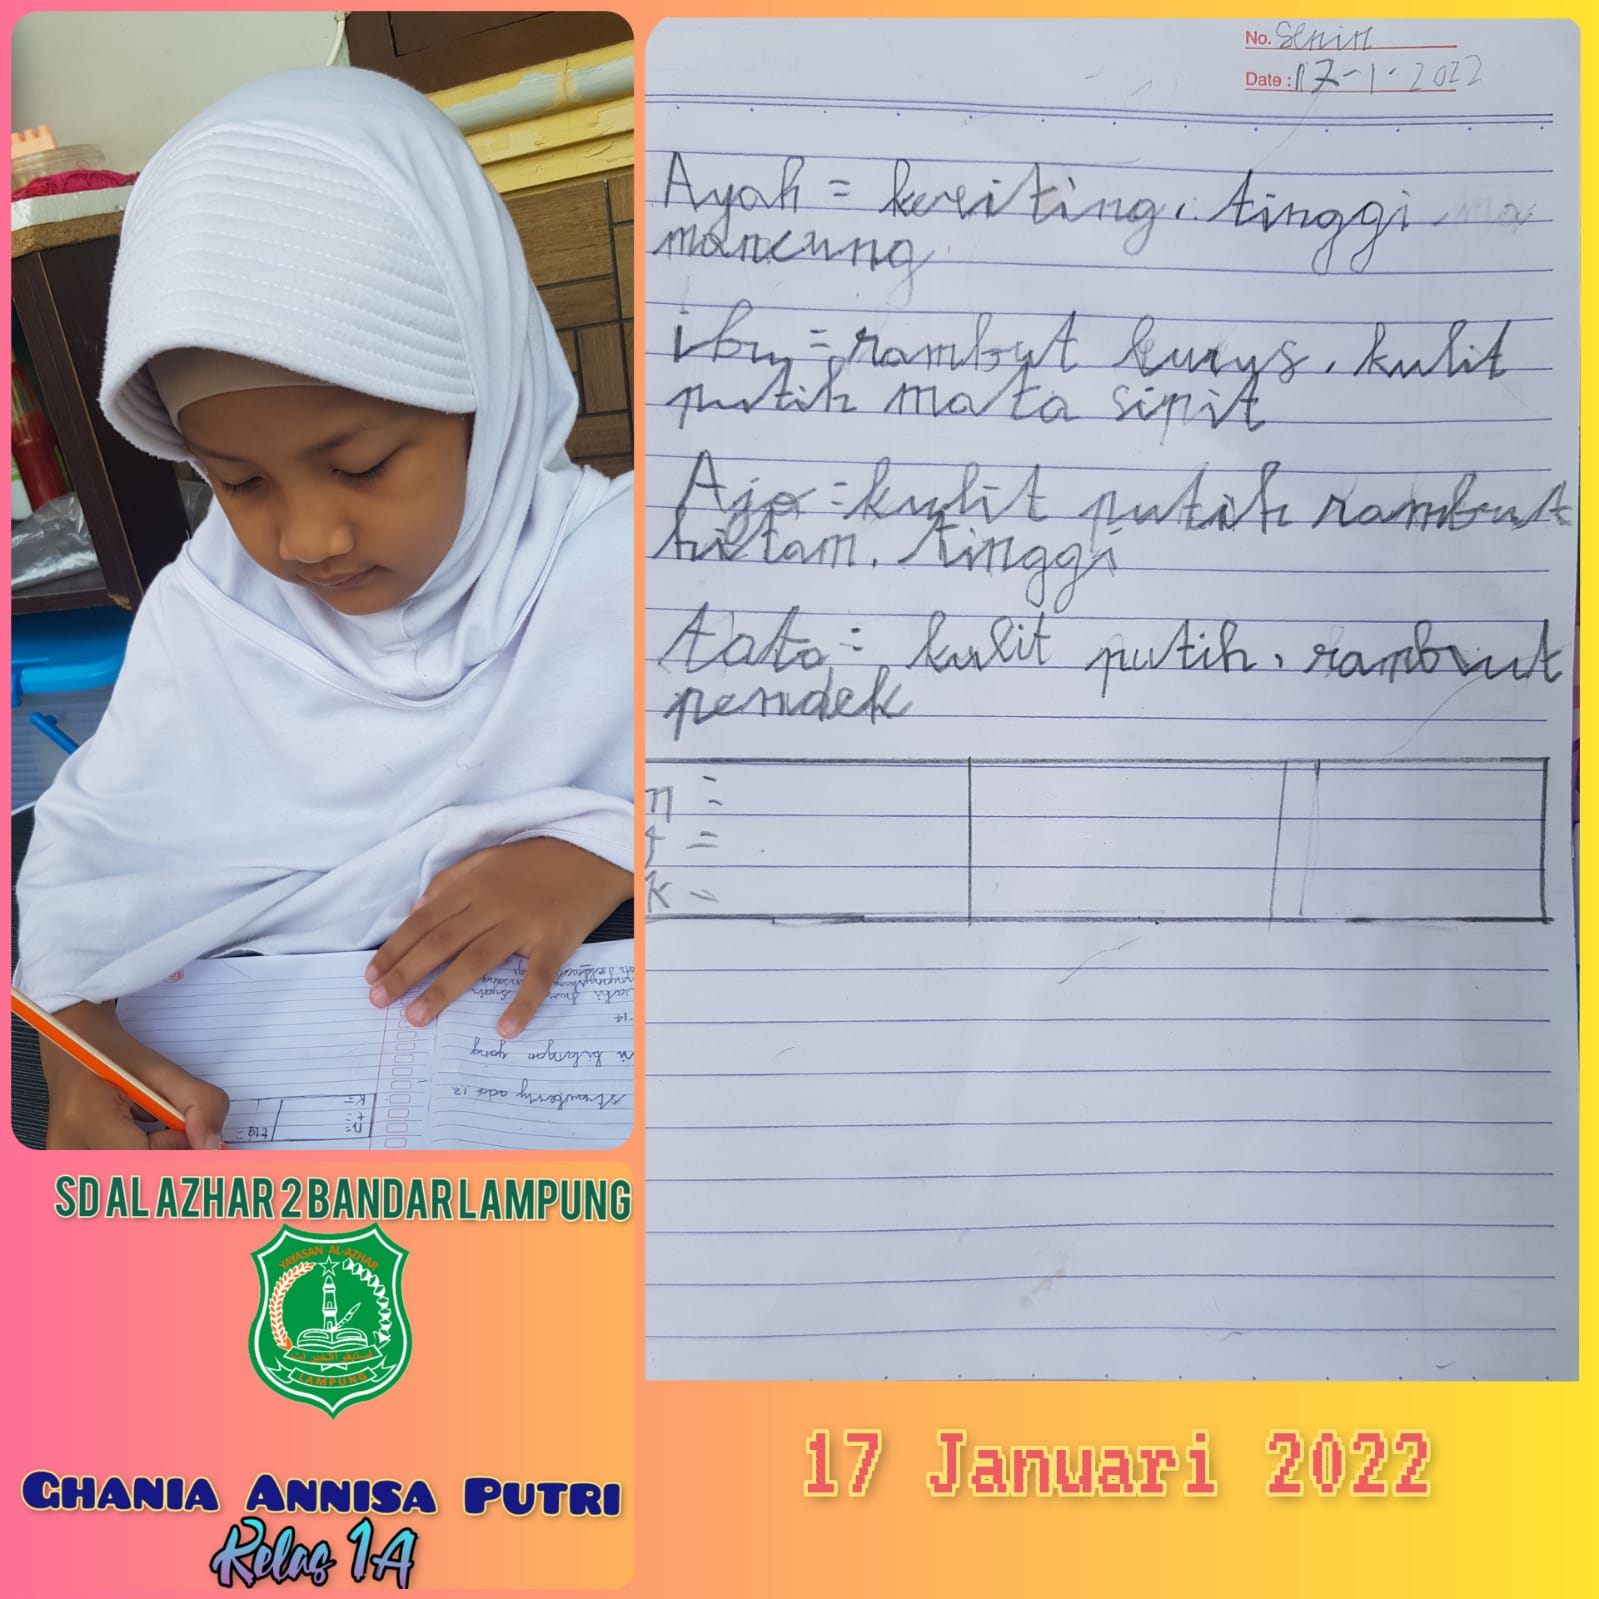 No. Senin
Date: 17-1-2022
Ayah = keriting, tinggi
mancung
ibu = rambut lurus, kulit
putih mata sipit
Ajo = kulit putih rambut
hitam. tinggi
tata = kulit putih, rambut
pendek
n =
t =
k =
bilangan yang
strawberry ada 12
n=
t=
k=
SD AL AZHAR 2 BANDAR LAMPUNG
YAYASAN AL-AZHAR
LAMPUNG
GHANIA ANNISA PUTRI
Kelas 1A
17 Januari 2022